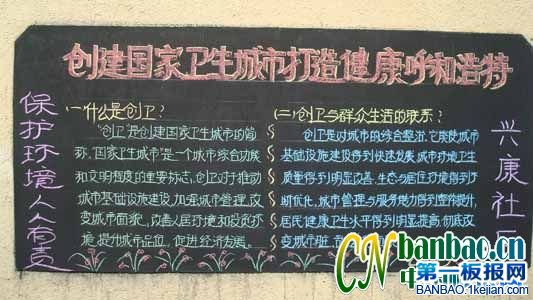 创建国家卫生城市打造健康呼和浩特
保护环境人人有责
一什么是创卫?
"创卫"是创建国家卫生城市的简
称,国家卫生城市是一个城市综合功能
和文明程度的重要标志,创卫对于推动
城市基础设施建设,加强城市管理,改
变城市面貌,改善人居环境和投资环
境,提升城市品位,促进经济发展。
(二)创卫与群众生活的联系?
创卫是对城市的综合整治,它能使城市
基础设施建设得到快速发展,城市环境卫生
质量得到明显改善,生态与居住环境得到
优化,城市管理与服务能力得到整体提升,
居民健康卫生水平得到明显提高,彻底改
变城市脏
兴康社区
CN banbao.cn
第一板报网
BANBAO.1kejian.com